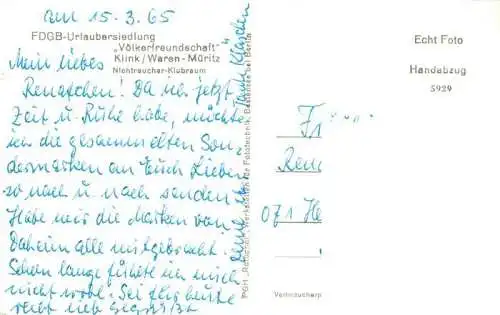 am 15.3.65
FDGB-Urlaubersiedlung
„Völkerfreundschaft"
Klink/Waren-Müritz
Nichtraucher-Klubraum
Mein liebes
Renatchen! Da ich jetzt
Zeit u. Ruhe habe, möchte
ich die gesammelten Son-
dermarken an Euch Lieben
so nach u. nach senden.
Habe mir die Marken von
Daheim alle mitgebracht.
Schon lange fühlte ich mich
nicht wohl. Sei für heute
recht lieb gegrüßt
Deine Tante Kläschen
PGH „Rotophot", Werkstätten für Fototechnik, Bestensee bei Berlin
Echt Foto
Handabzug
5929
Fr
Ren
071 He
Vertraucherp